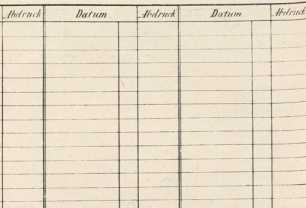 Abdruck Datum Abdruck Datum Abdruck